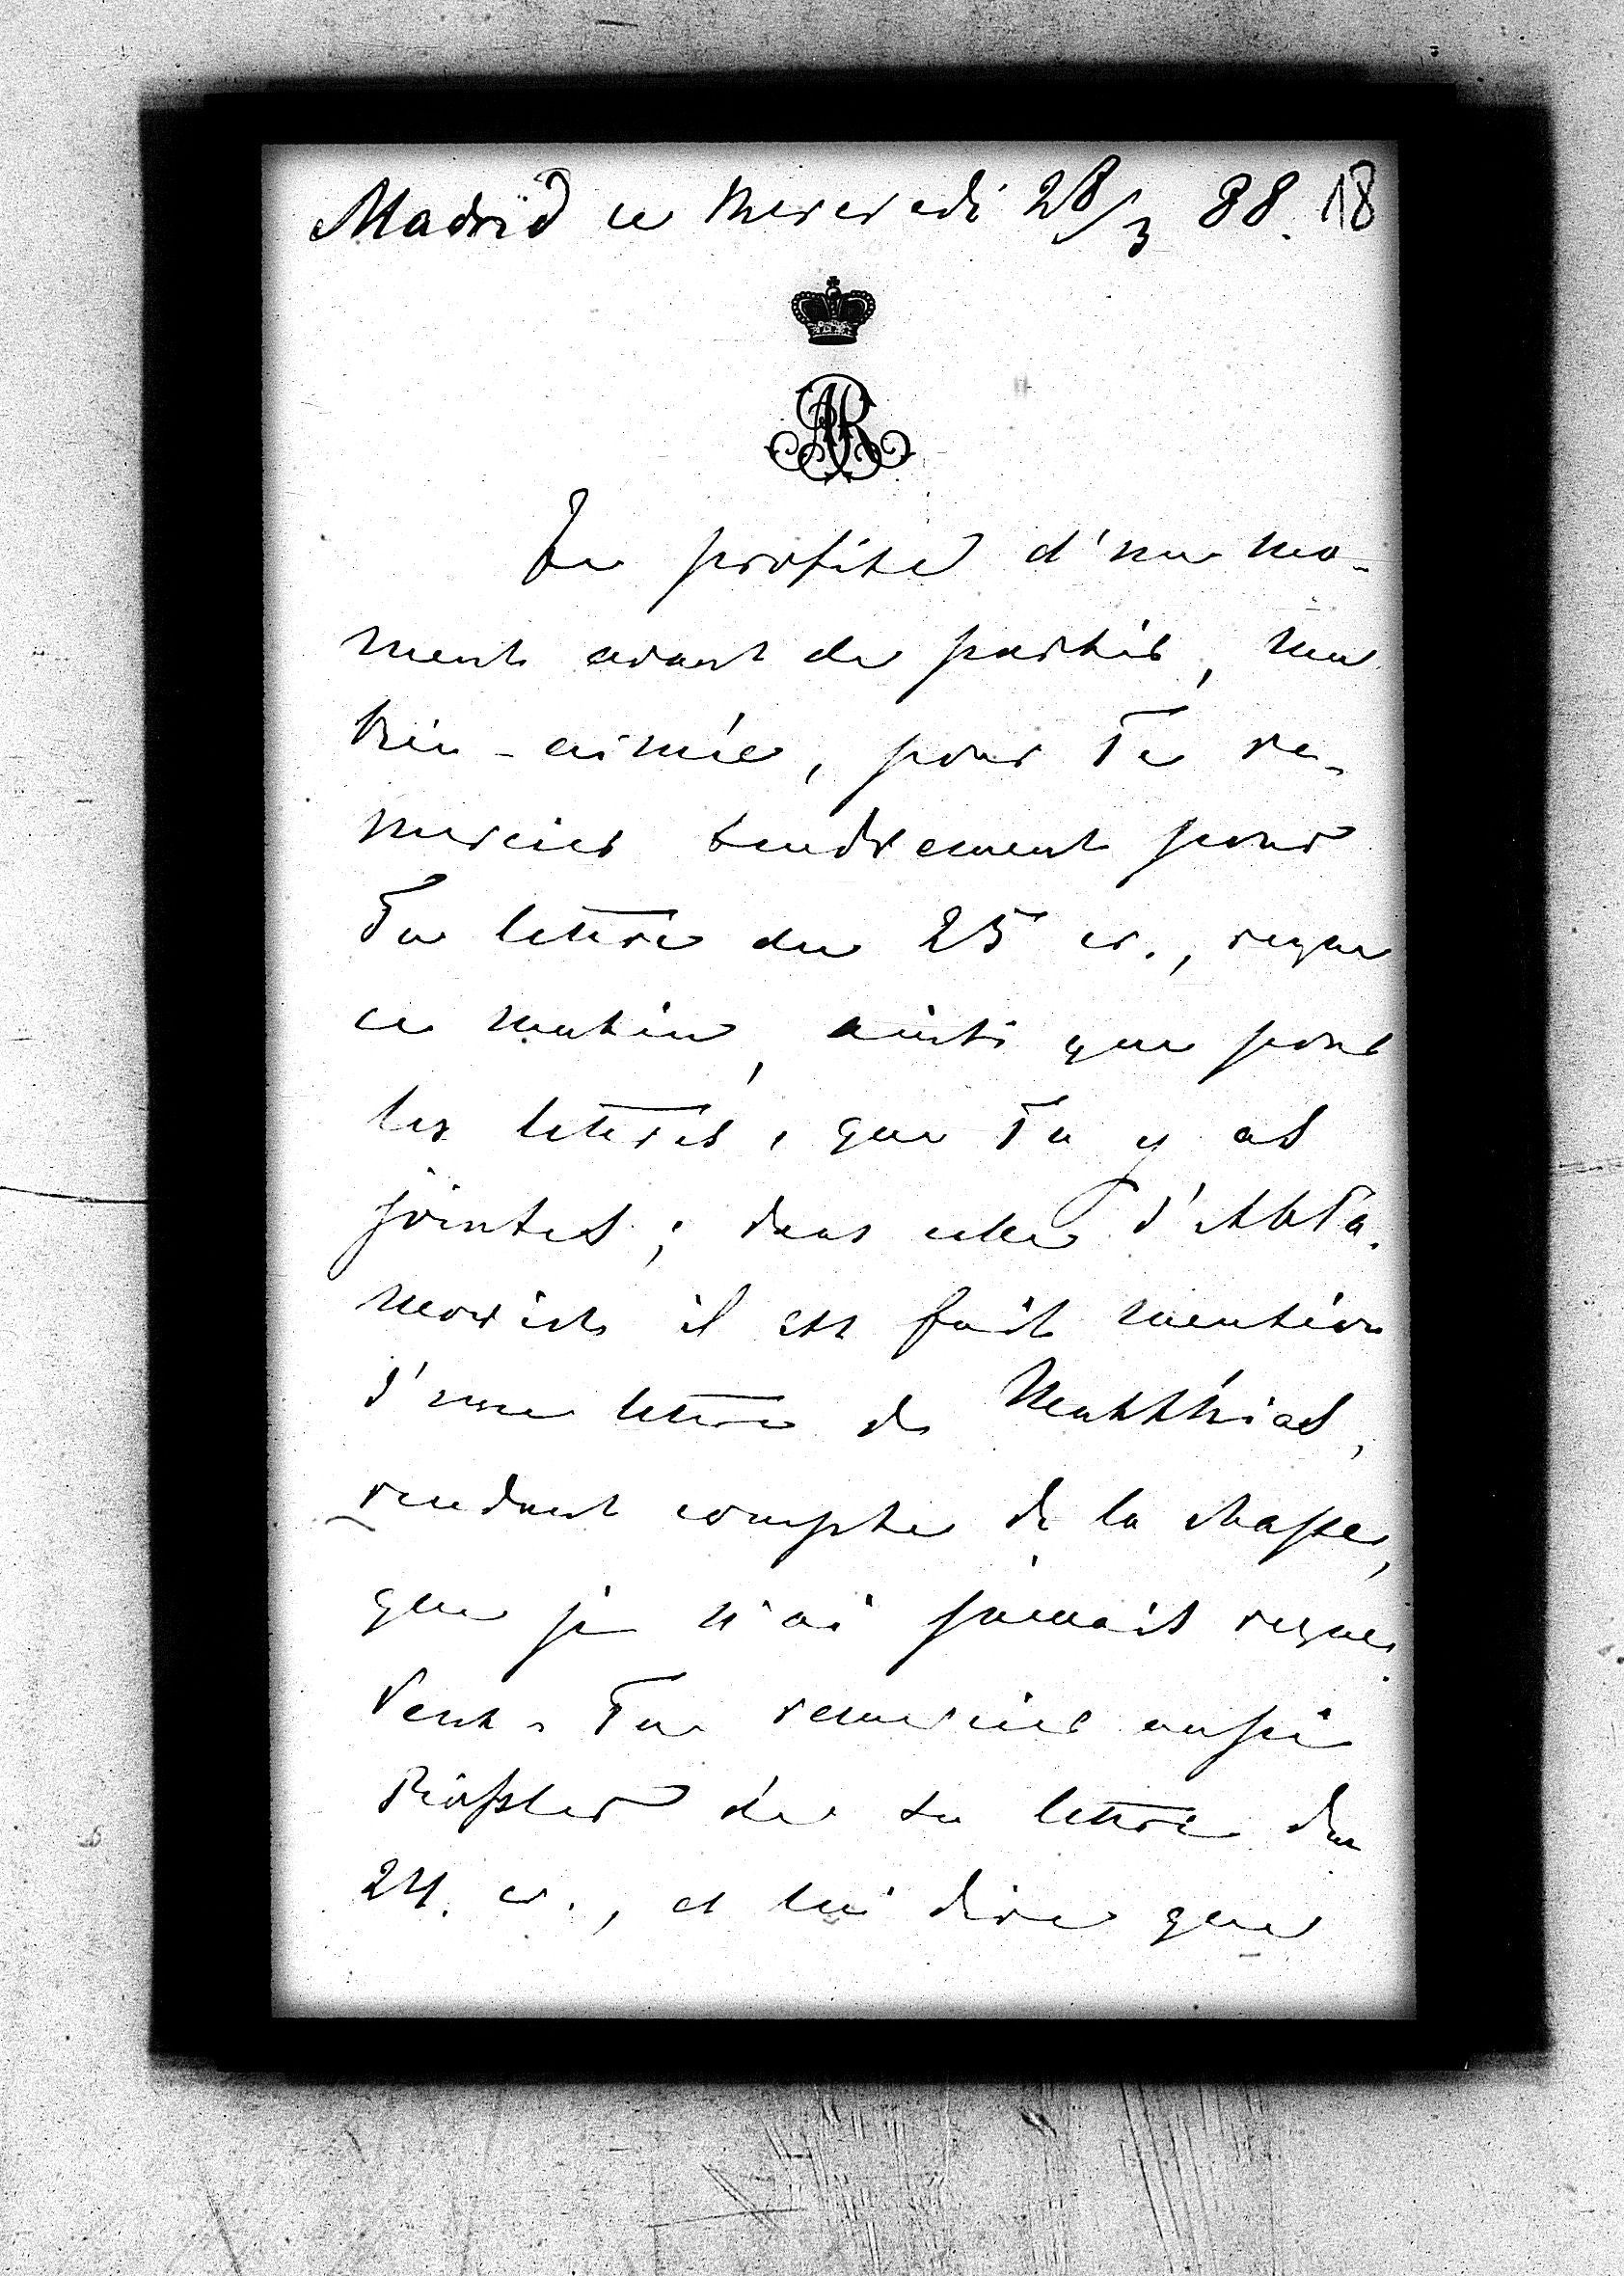 Madrid ce Mercredi 28/3 88. 18
AR
Je profite d'un mo-
ment avant de partir, ma
bien-aimée, pour Te re-
mercier tendrement pour
Ta lettre du 25 cr., reçue
ce matin, ainsi que pour
les lettres, que Tu y as
jointes; dans celle
il est fait mention
d'une lettre de Matthias,
rendant compte de la chasse,
que je n'ai jamais reçue.
Veux-Tu remercier aussi
de sa lettre du
24. cr., et lui dire que